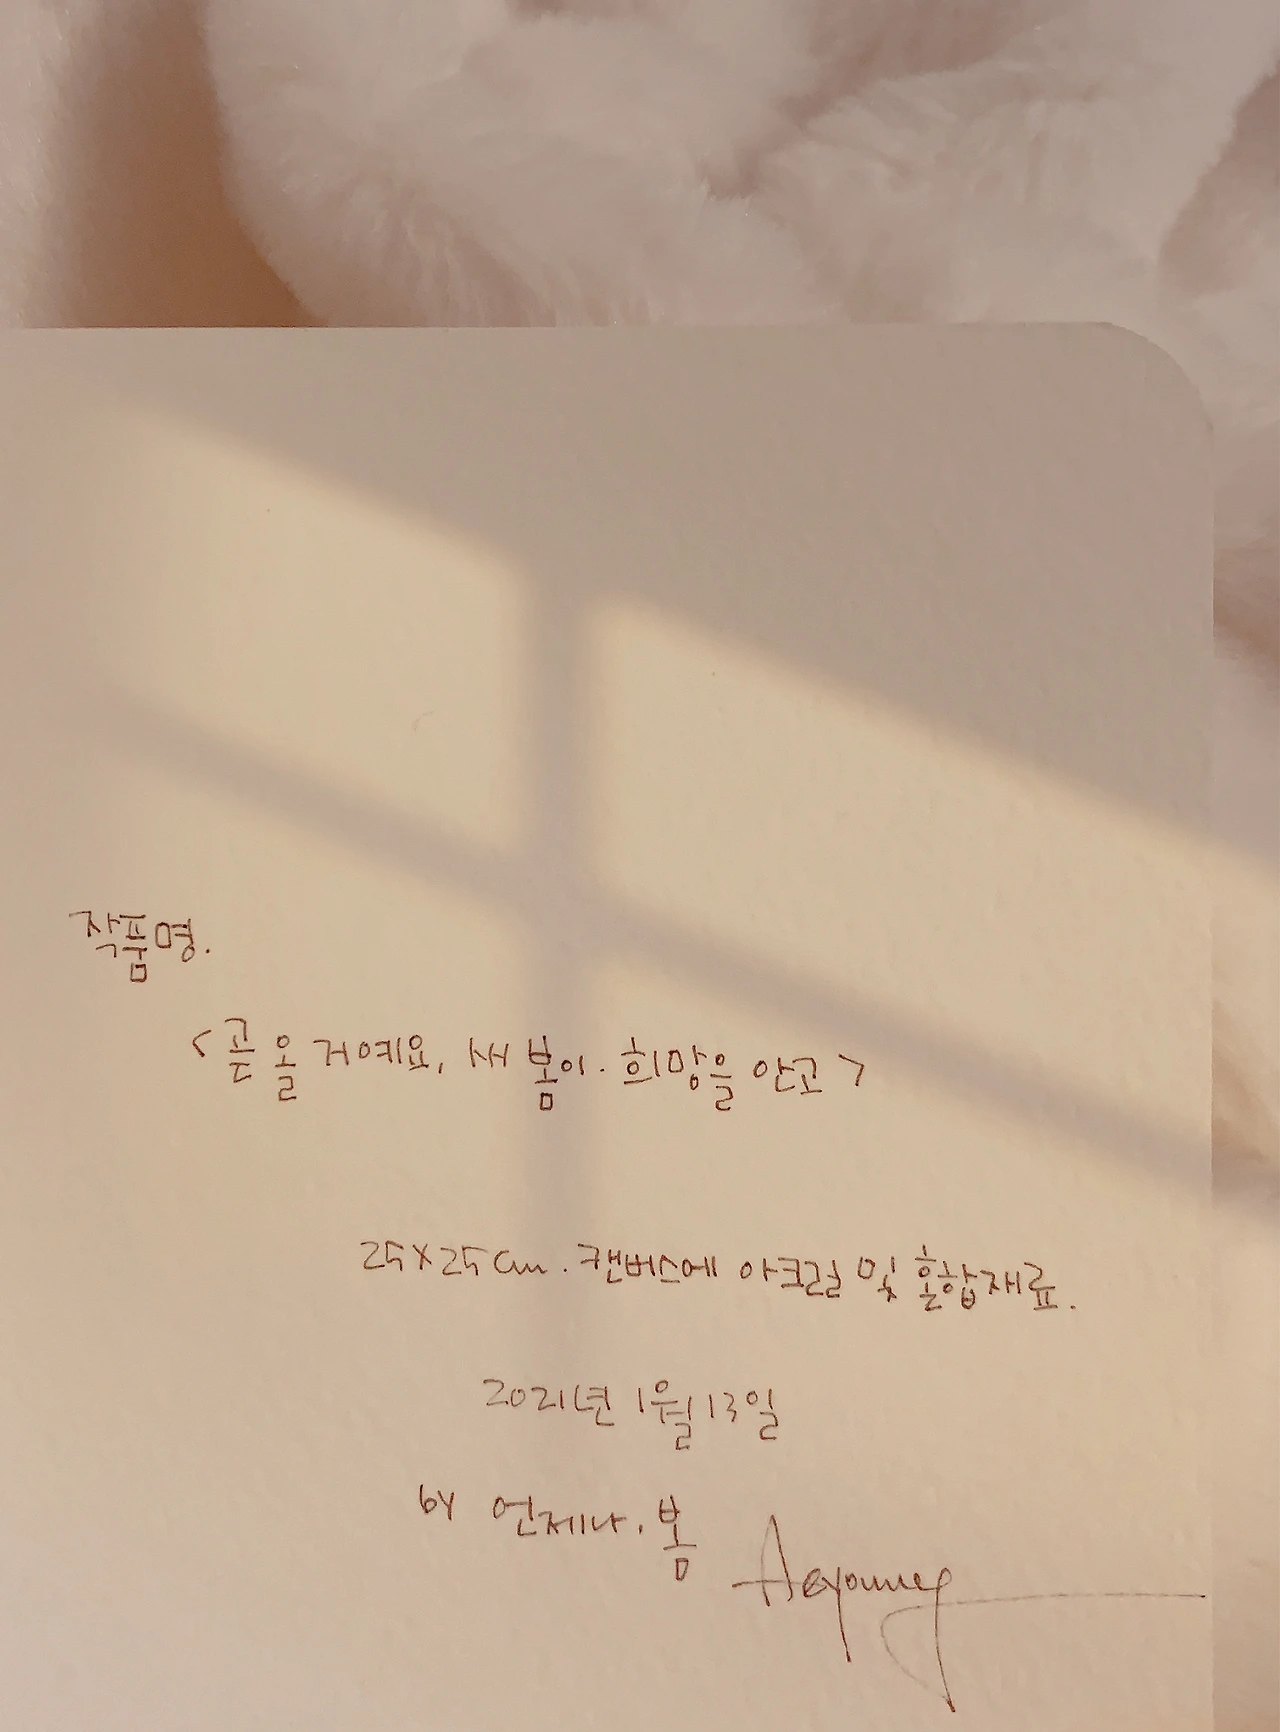 작품명.
<곧 올 거예요, 새 봄이. 희망을 안고>
25x25cm. 캔버스에 아크릴 및 혼합재료.
2021년 1월 13일
by 언제나. 봄 Aeyoung